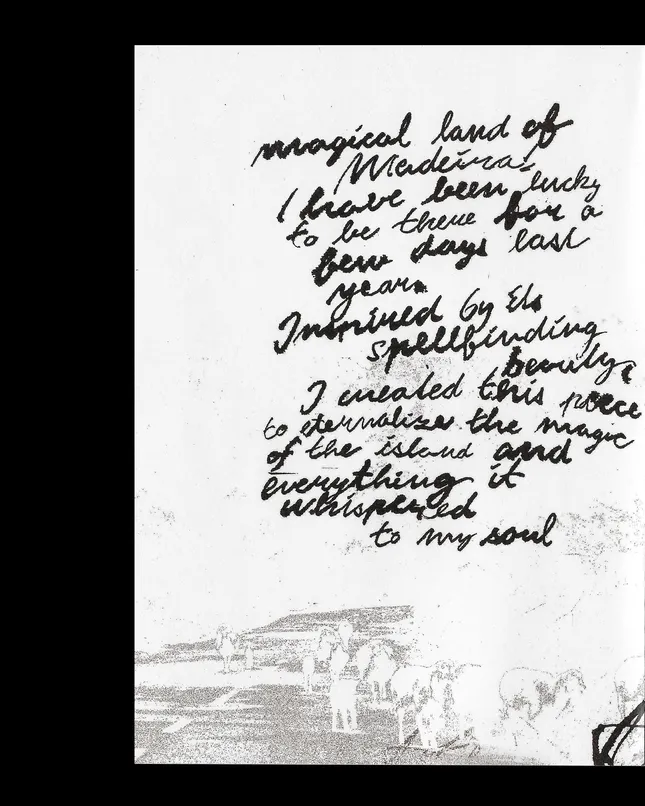 magical land of
Madeira.
I have been lucky
to be there for a
few days last
year.
Inspired by its
spellbinding
beauty,
I created this piece
to eternalize the magic
of the island and
everything it
whispered
to my soul